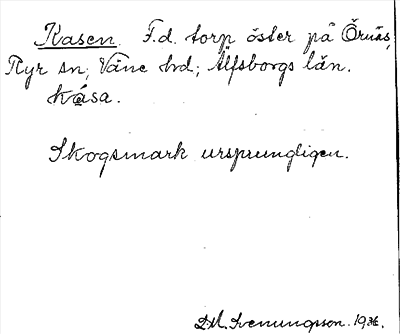 Kasen. F.d. torp öster på Örnäs,
Ryr sn; Väne hd; Älfsborgs län.
kása.
Skogsmark ursprungligen.
D.M. Svenungsson. 1936.